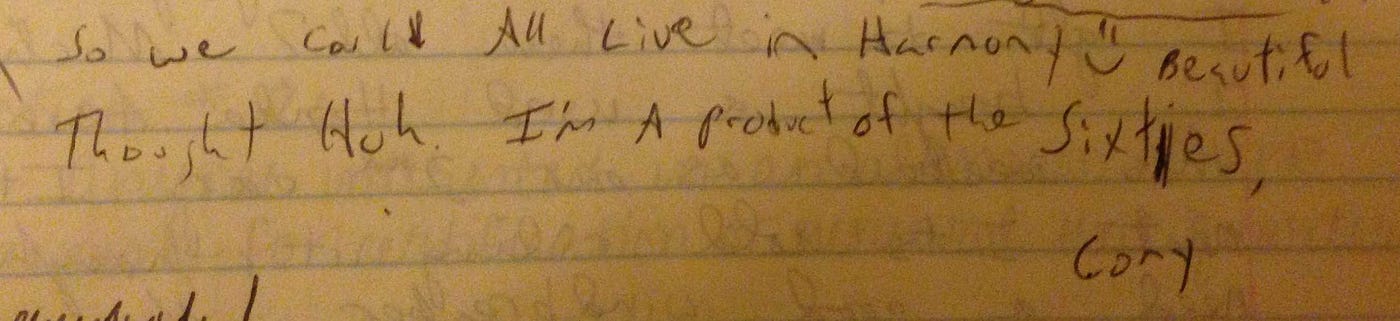 So we could All Live in Harmony Beautiful
Thought Huh. I'm A product of the Sixties,
Cory